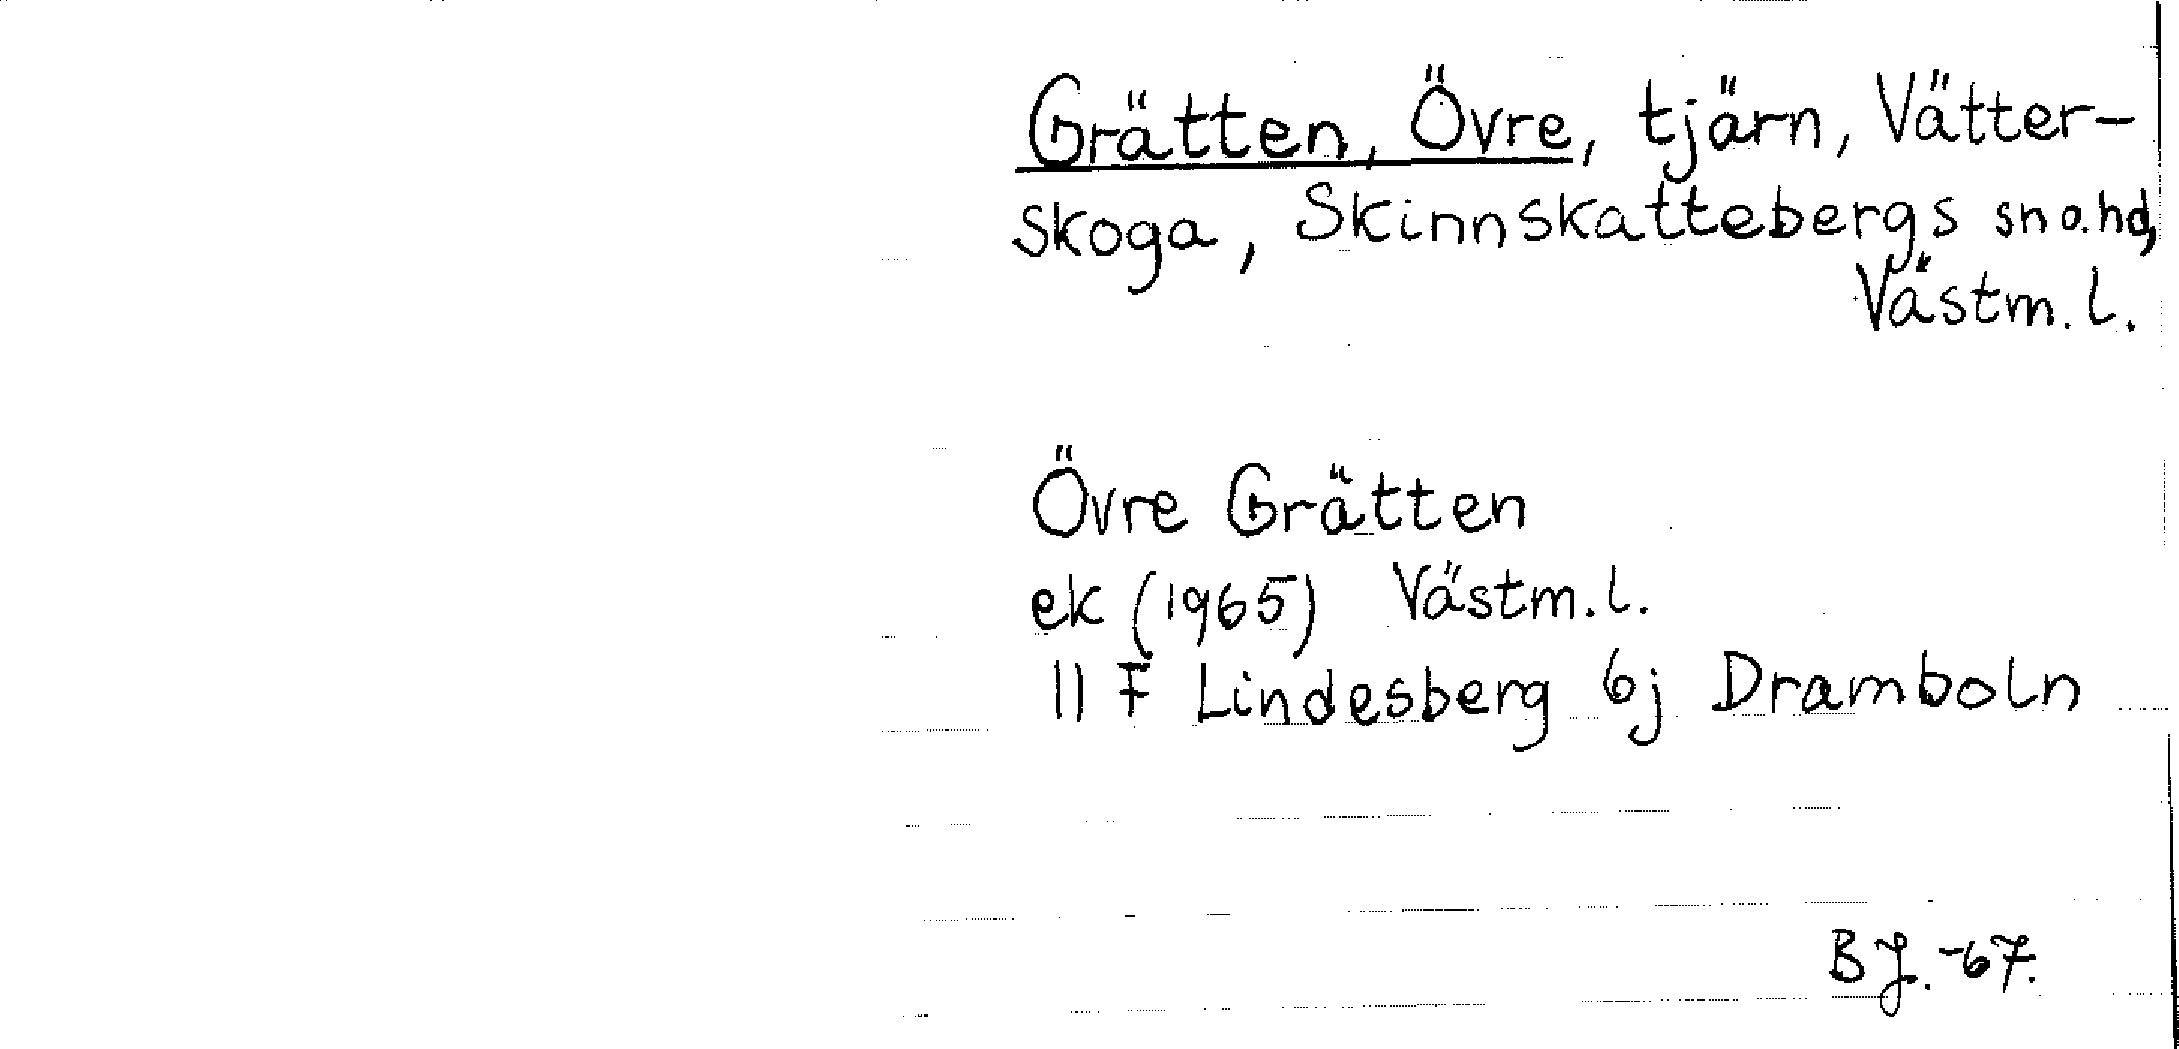 Grätten, Övre, tjärn, Vätter-
skoga, Skinnskattebergs sn o. hd,
Västm. l.
Övre Grätten
ek (1965) Västm. l.
11 F Lindesberg 6j Dramboln
B J. -67.